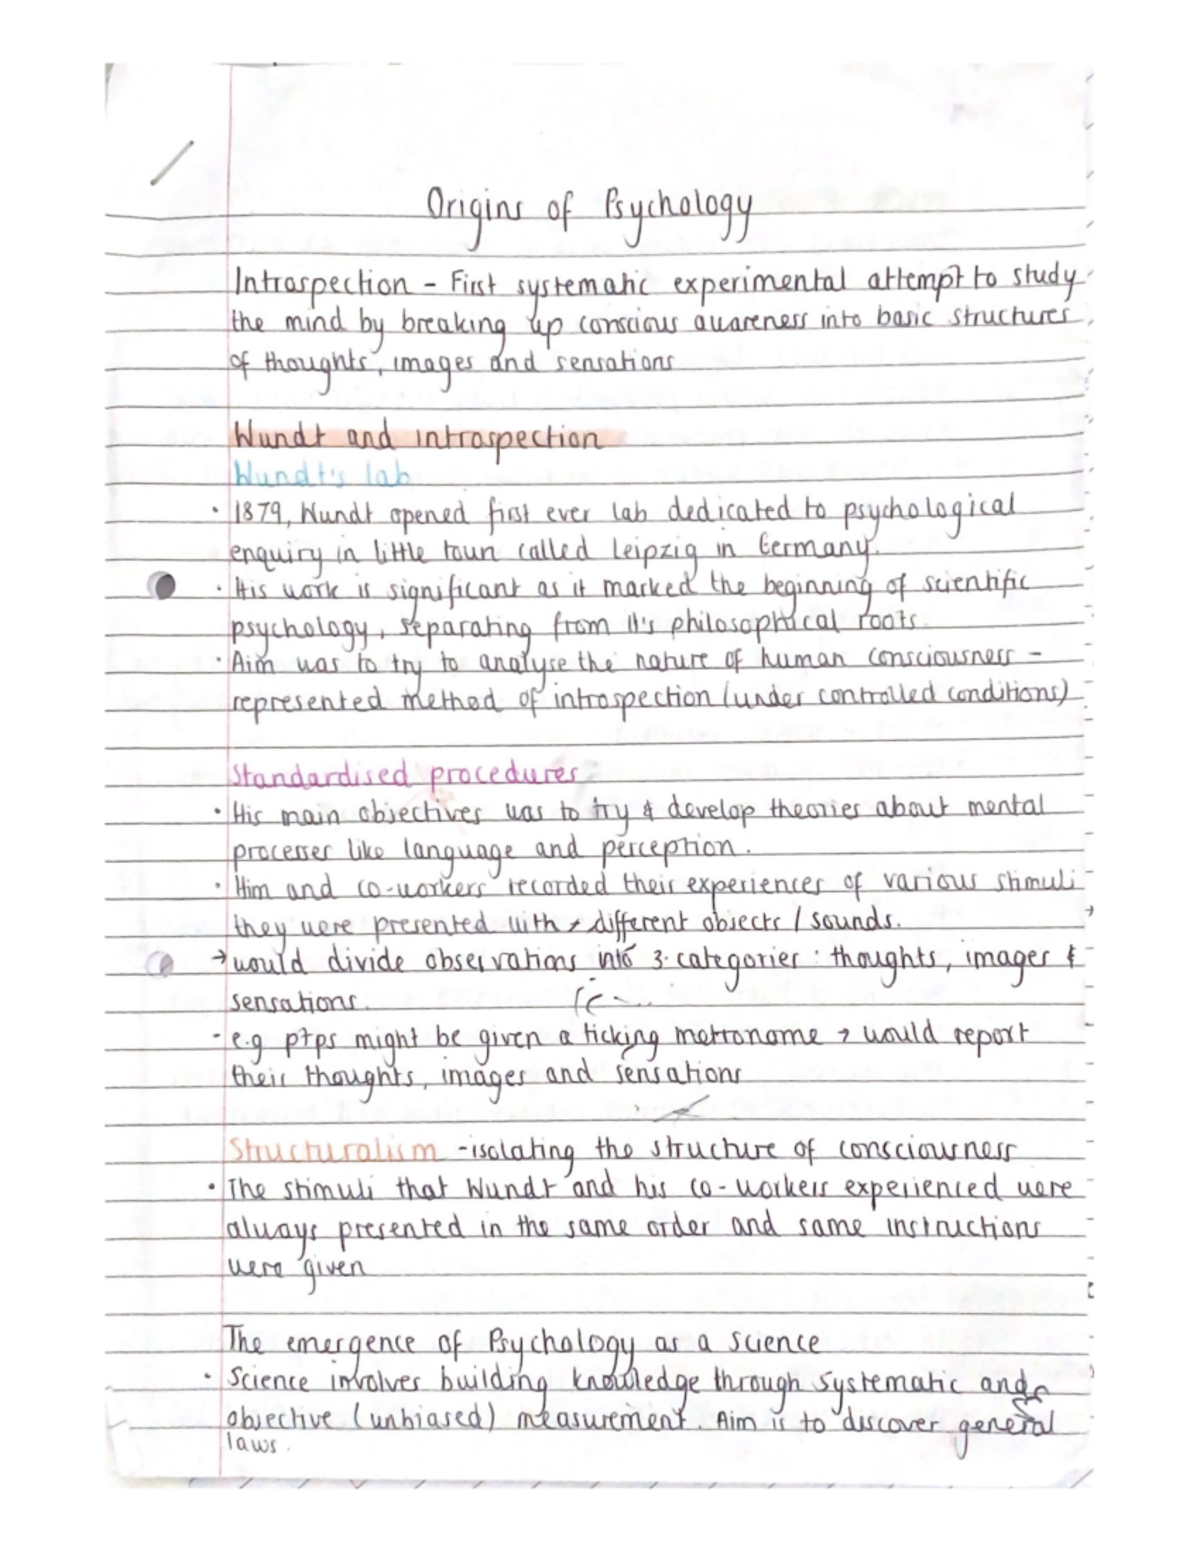 Origins of Psychology
Introspection - First systematic experimental attempt to study
the mind by breaking up conscious awareness into basic structures
of thoughts, images and sensations
Wundt and introspection
Wundt's lab
· 1879, Wundt opened first ever lab dedicated to psychological
enquiry in little town called Leipzig in Germany.
· His work is significant as it marked the beginning of scientific
psychology, separating from it's philosophical roots.
· Aim was to try to analyse the nature of human consciousness -
represented method of introspection (under controlled conditions)
Standardised procedures
· His main objectives was to try & develop theories about mental
processes like language and perception.
· Him and co-workers recorded their experiences of various stimuli
they were presented with → different objects / sounds.
→ would divide observations into 3 categories : thoughts, images &
sensations.
- e.g ptps might be given a ticking metronome → would report
their thoughts, images and sensations
Structuralism - isolating the structure of consciousness
· The stimuli that Wundt and his co-workers experienced were
always presented in the same order and same instructions
were given
The emergence of Psychology as a science
· Science involves building knowledge through systematic and
objective (unbiased) measurement. Aim is to discover general
laws.